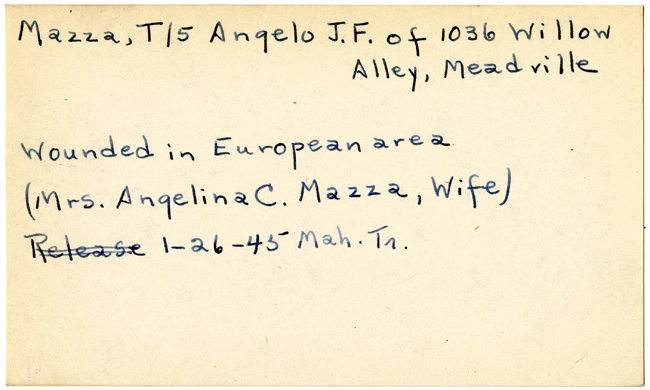 Mazza, T/5 Angelo J.F. of 1036 Willow
Alley, Meadville
Wounded in European area
(Mrs. Angelina C. Mazza, Wife)
Release 1-26-45 Mah. Tr.